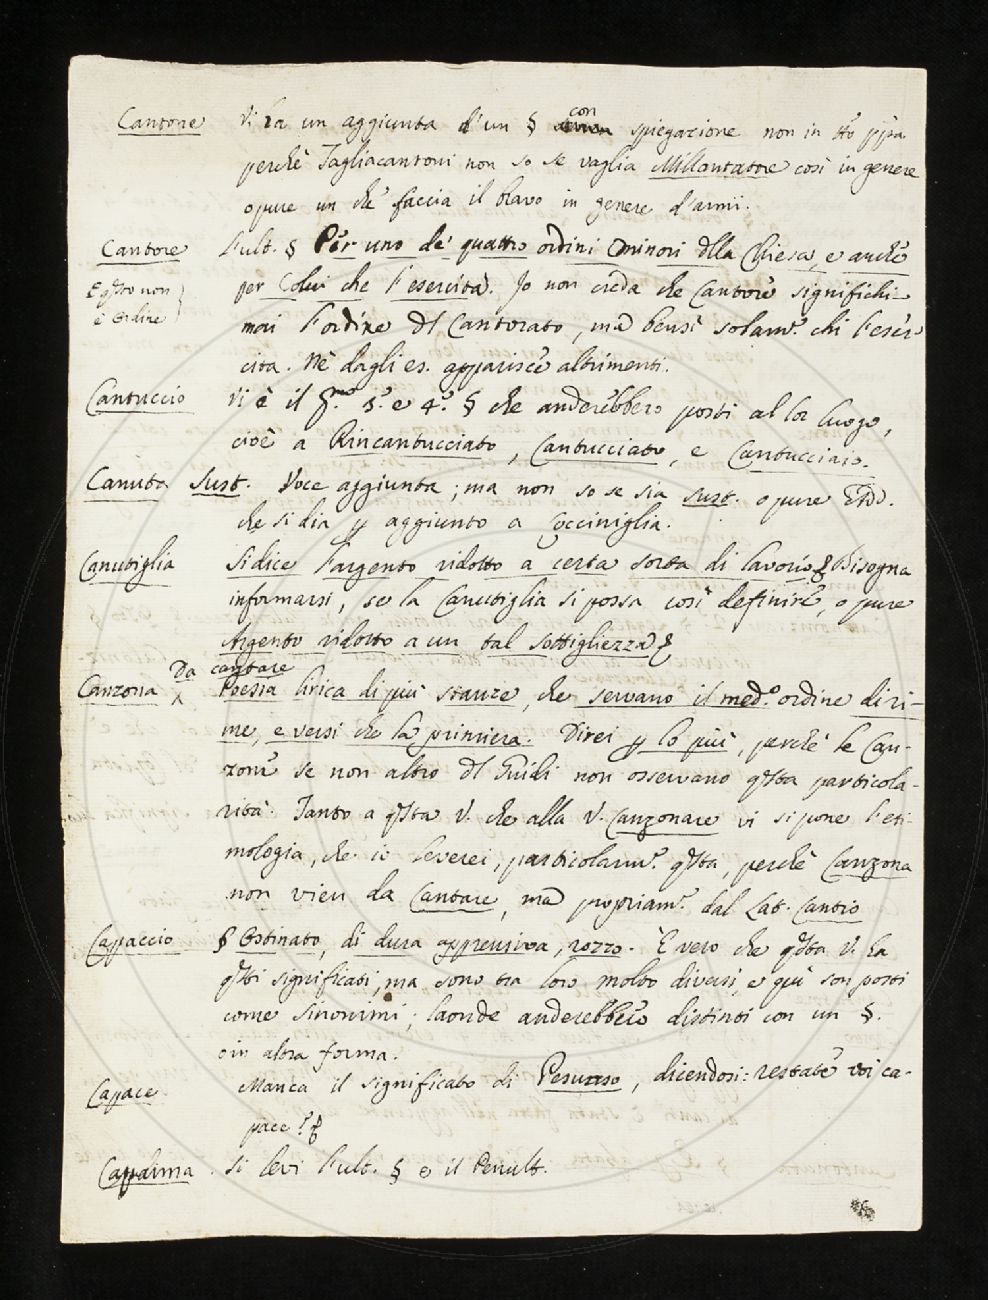 Cantone Vi ha un aggiunta d'un § con spiegazione non in
perchè Tagliacantoni non so se vaglia Millantatore così in genere
opure un che faccia il bravo in genere d'armi.
Cantore l'ult. § Per uno de' quattro ordini minori della Chiesa, e anche
E qsto non per Colui che l'esercita. Io non creda che Cantore significhi
è ordine mai l'ordine del Cantorato, ma bensì solam.e chi l'eser
cita. Nè dagli es. apparisce altrimenti.
Cantuccio Vi è il 3.° e 4.° § che anderebbero posti al lor luogo,
cioè a Rincantucciato, Cantucciato, e Cantucciaio.
Canuta Sust. Voce aggiunta; ma non so se sia Sust. opure
che si dia p aggiunto a Cocciniglia.
Canutiglia Si dice l'argento ridotto a certa sorta di lavorio Bisogna
informarsi, se la Canutiglia si possa così definire, o pure
Argento ridotto a un tal sottigliezza
Da cantare
Canzona Poesia lirica di più stanze, che servano il med.o ordine di ri-
me, e versi che la primiera. Direi p lo più, perchè le Can-
zoni se non altro del Guidi non osservano qsta particola-
rità. Tanto a qsta V. che alla V. Canzonare vi si pone l'eti-
mologia, che io leverei, particolarm.e qsta, perchè Canzona
non vien da Cantare, ma propriam.e dal Lat. Cantio
Capaccio § Ostinato, di dura apprensiva, rozzo. È vero che qsta V. ha
qsti significati, ma sono tra loro molto diversi, e qui son posti
come sinonimi; laonde anderebbero distinti con un §.
o in altra forma.
Capace Manca il significato di Persuaso, dicendosi: restate voi ca-
pace?
Cappalma. Si levi l'ult. § o il Penult.